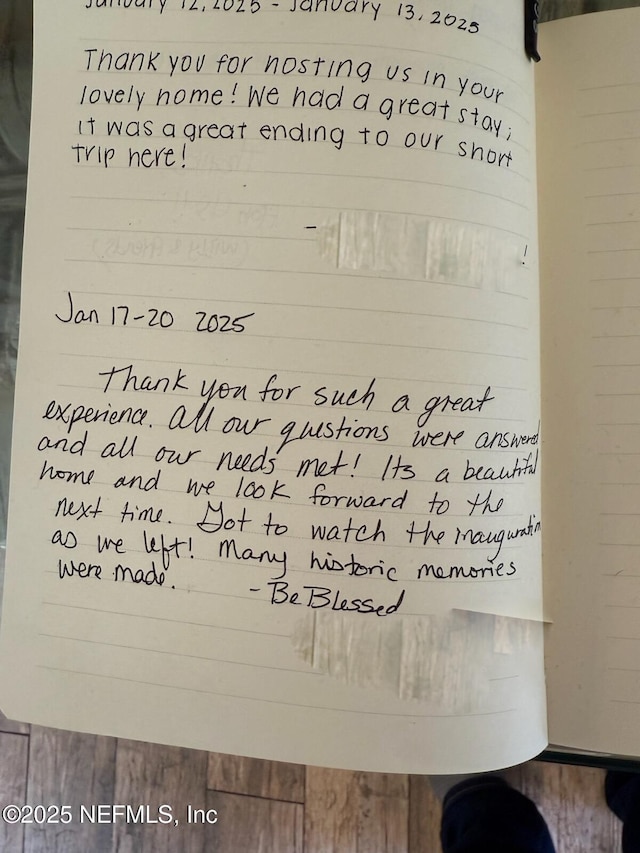 January 12, 2025 - January 13, 2025
Thank you for hosting us in your
lovely home! We had a great stay;
it was a great ending to our short
trip here!
- !
Jan 17-20 2025
Thank you for such a great
experience. All our questions were answered
and all our needs met! Its a beautiful
home and we look forward to the
next time. Got to watch the inauguration
as we left! Many historic memories
were made.
- Be Blessed
©2025 NEFMLS, Inc